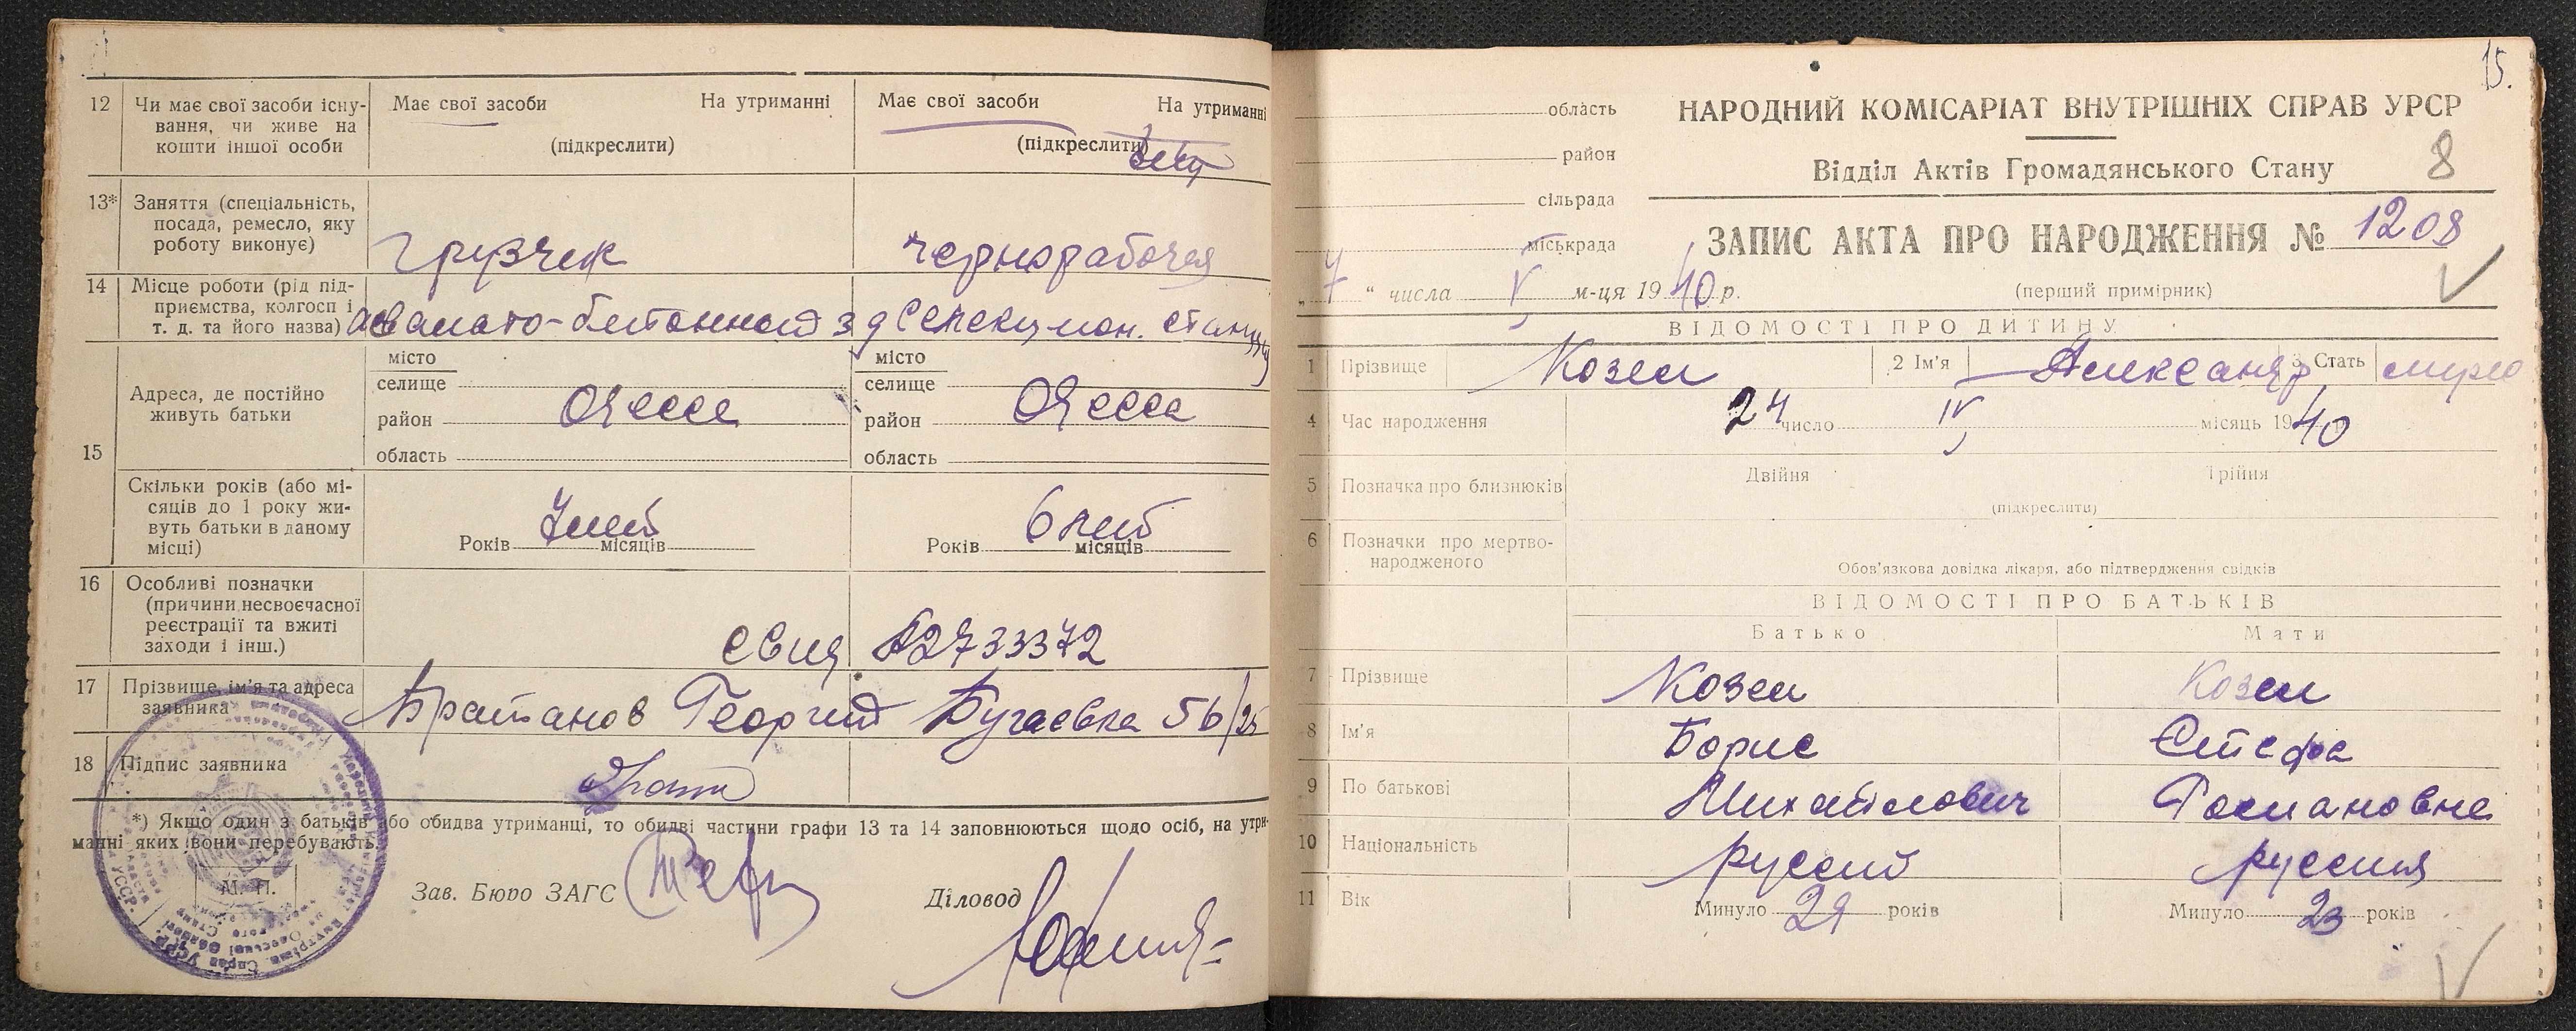 12 Чи має свої засоби існу- Має свої засоби На утриманні Має свої засоби На утриманні
вання, чи живе на
кошти іншої особи (підкреслити) (підкреслити)
13* Заняття (спеціальність,
посада, ремесло, яку
роботу виконує) грузчик чернорабочая
14 Місце роботи (рід під-
приємства, колгосп і
т. д. та його назва) асвальто-бетонный з д Селекцион. станция
місто місто
селище селище
Адреса, де постійно
живуть батьки район Одесса район Одесса
15 область область
Скільки років (або мі-
сяців до 1 року жи-
вуть батьки в даному
місці) Років 7 лет місяців Років 6 лет місяців
16 Особливі позначки
(причини несвоєчасної
реєстрації та вжиті
заходи і інш.) 2733372
17 Прізвище, ім'я та адреса
заявника Братанов Георгий Бугаевка 56/25
18 Підпис заявника
*) Якщо один з батьків або обидва утриманці, то обидві частини графи 13 та 14 заповнюються щодо осіб, на утри-
манні яких вони перебувають.
М. П. Зав. Бюро ЗАГС Діловод
15.
область НАРОДНИЙ КОМІСАРІАТ ВНУТРІШНІХ СПРАВ УРСР
район Відділ Актів Громадянського Стану 8
сільрада
міськрада ЗАПИС АКТА ПРО НАРОДЖЕННЯ № 1208
„ 7 “ числа V м-ця 1940 р. (перший примірник)
ВІДОМОСТІ ПРО ДИТИНУ
1 Прізвище Козел 2 Ім'я Александр 3 Стать муж
4 Час народження 24 число IV місяць 1940
5 Позначка про близнюків Двійня Трійня
(підкреслити)
6 Позначки про мертво-
народженого Обов'язкова довідка лікаря, або підтвердження свідків
ВІДОМОСТІ ПРО БАТЬКІВ
Батько Мати
7 Прізвище Козел Козел
8 Ім'я Борис Стефа
9 По батькові Михайлович Романовна
10 Національність русский русская
11 Вік Минуло 29 років Минуло 23 років